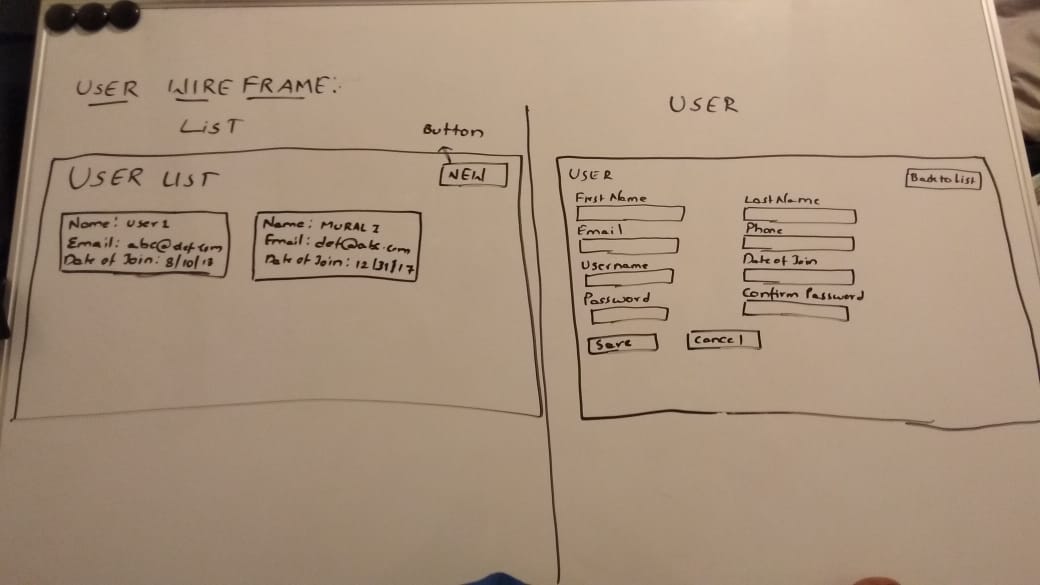 USER WIRE FRAME:
LIST
Button
USER LIST
NEW
Name: User1
Email: abc@def.com
Date of Join: 8/10/17
Name: MURALI
Email: def@abc.com
Date of Join: 12/31/17
USER
USER
Back to List
First Name
Last Name
Email
Phone
Username
Date of Join
Password
Confirm Password
Save
Cancel